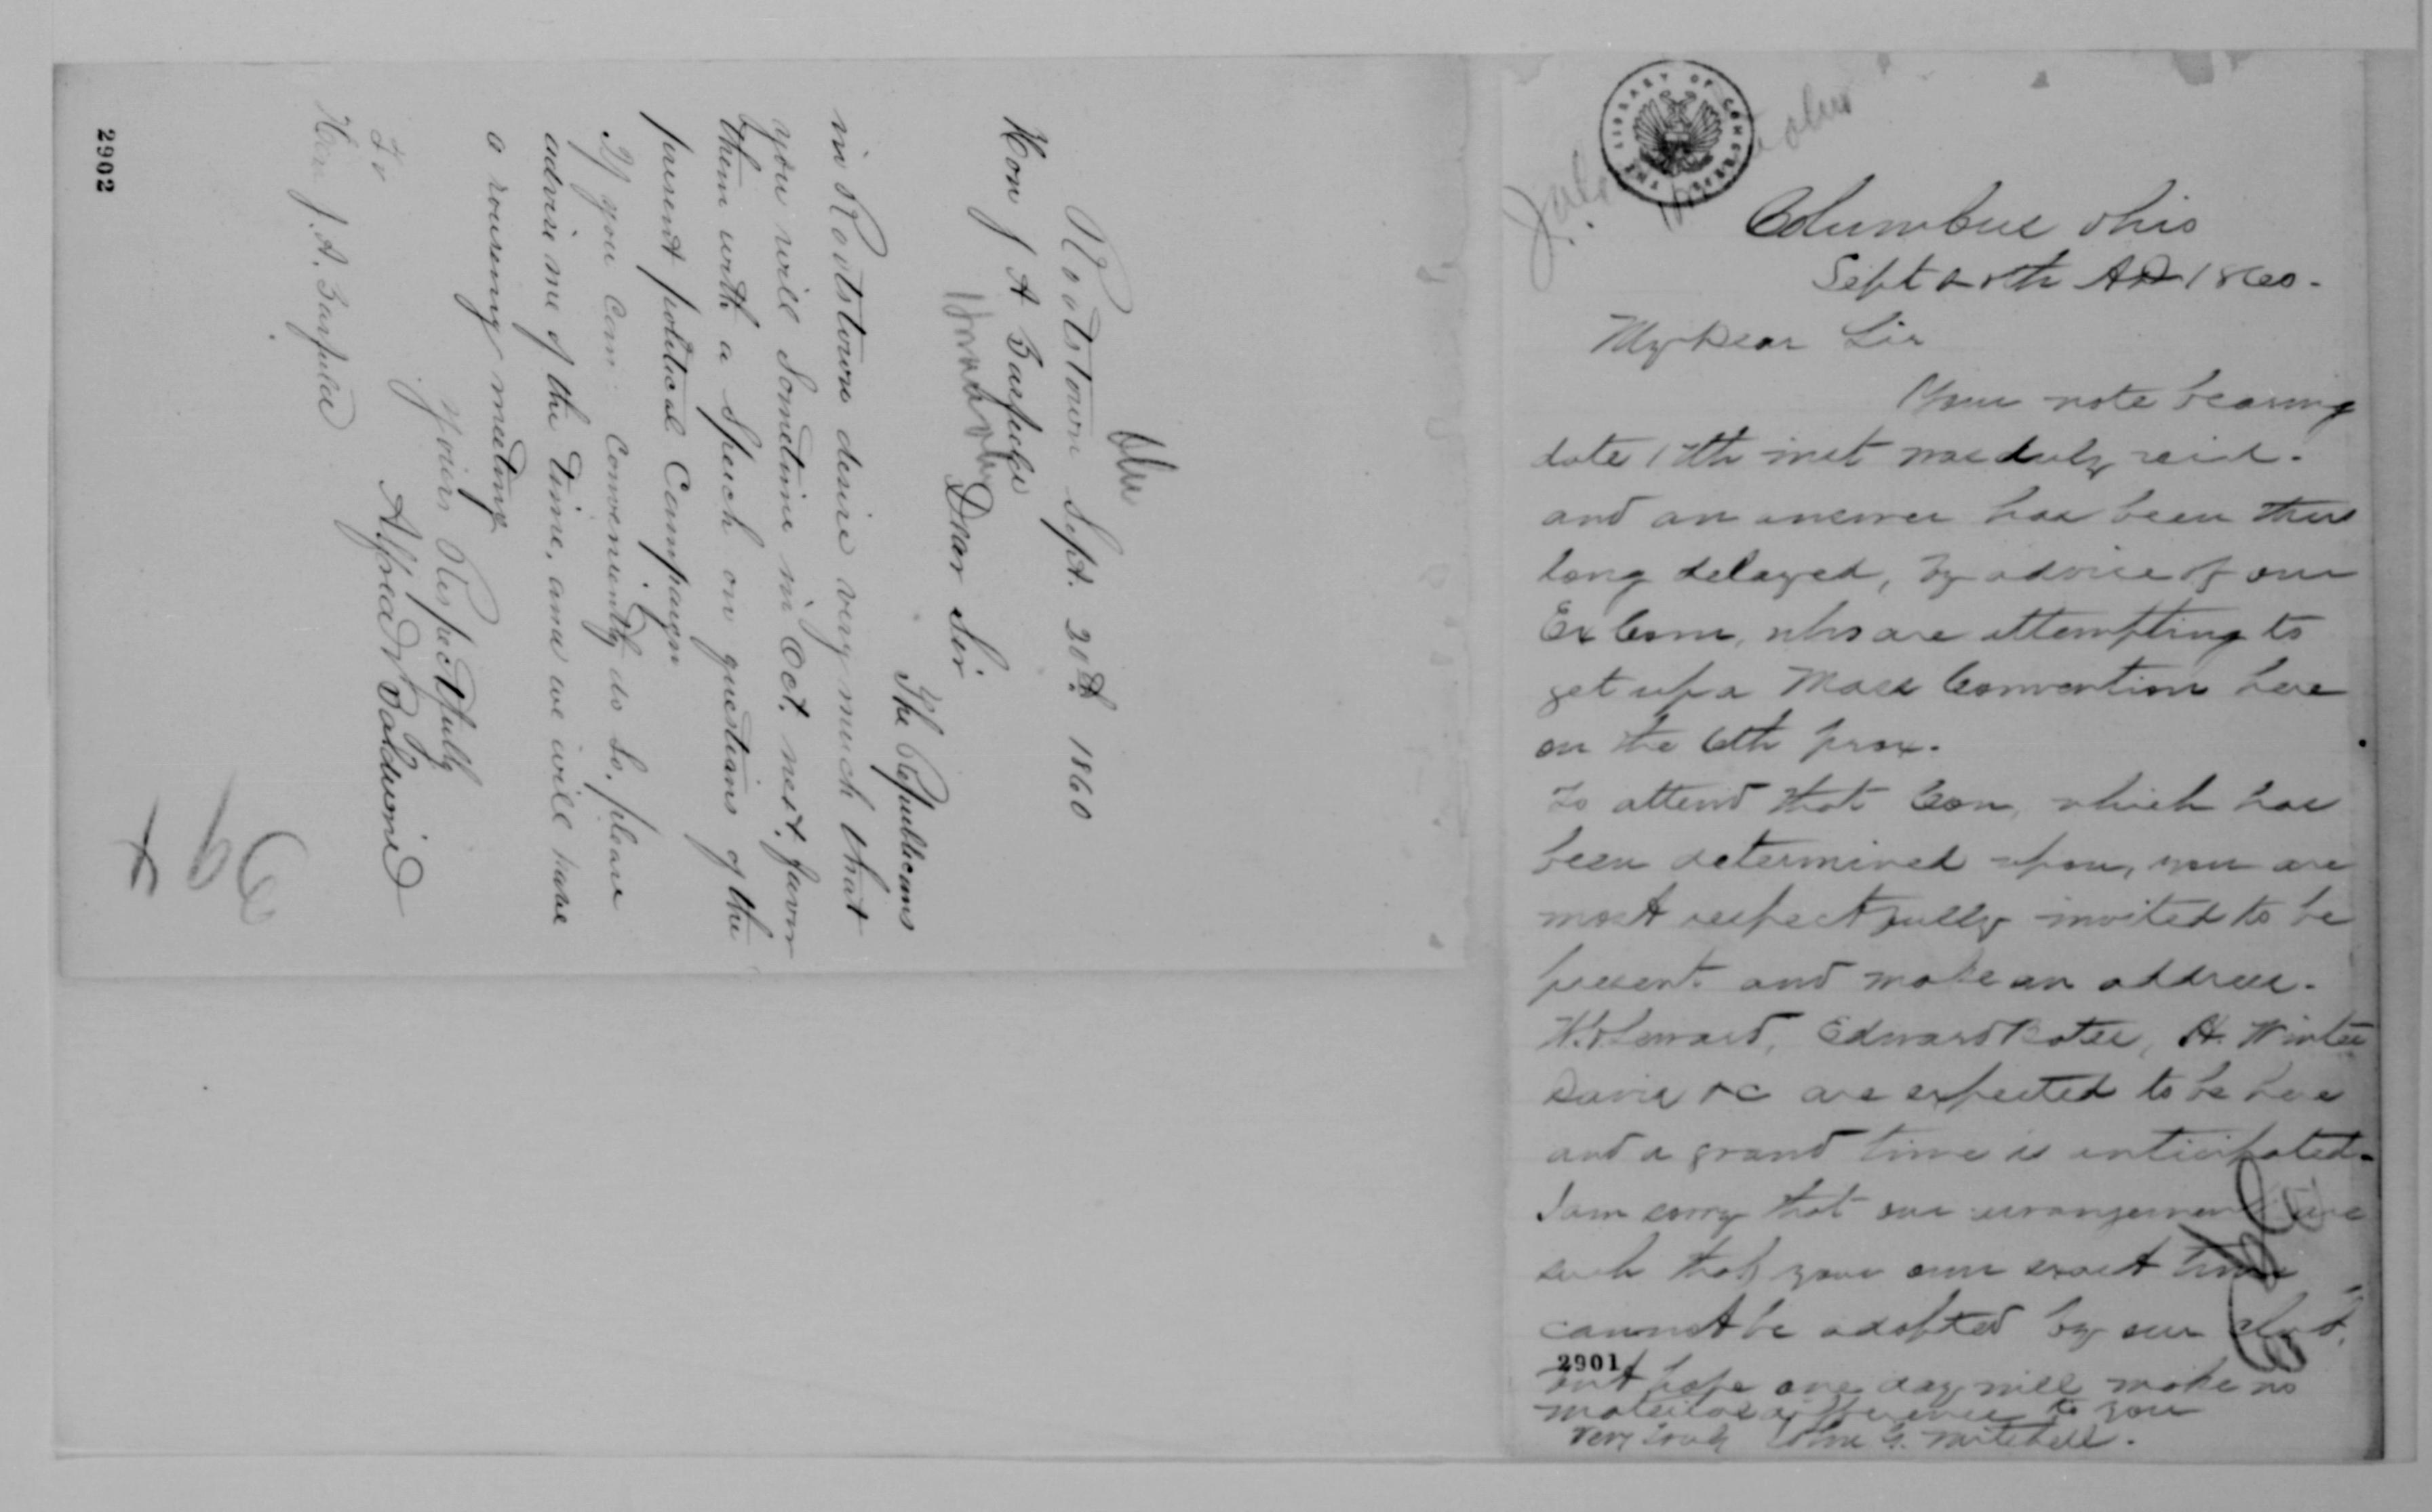 2902
Ohio
Rootstown Sept. 20th 1860
Hon J A Garfield
Hiram Ohio
Dear Sir
The Republicans
in Rootstown desire very much that
you will Sometime in Oct. next, favor
them with a Speech on questions of the
present political Campaign
If you can Conveniently do So, please
advise me of the time, and we will have
a rousing meeting
Yours Respectfully
Alfred Baldwin
To
Hon J. A. Garfield
THE LIBRARY OF CONGRESS
Columbus Ohio
Sept th AD 1860.
My Dear Sir
Your note bearing
date 17th inst was duly recd.
and an answer has been thus
long delayed, by advice of our
Ex Com, who are attempting to
get up a Mass Convention here
on the 6th prox.
To attend that Con, which has
been determined upon, you are
most respectfully invited to be
present and make an address.
W. H Seward, Edward Bates, H. Winter
Davis &c are expected to be here
and a grand time is anticipated.
I am sorry that our arrangements are
such that your own exact time
cannot be adopted by our club,
2901
but hope one day will make no
material difference to you
Very truly John G. Mitchell.